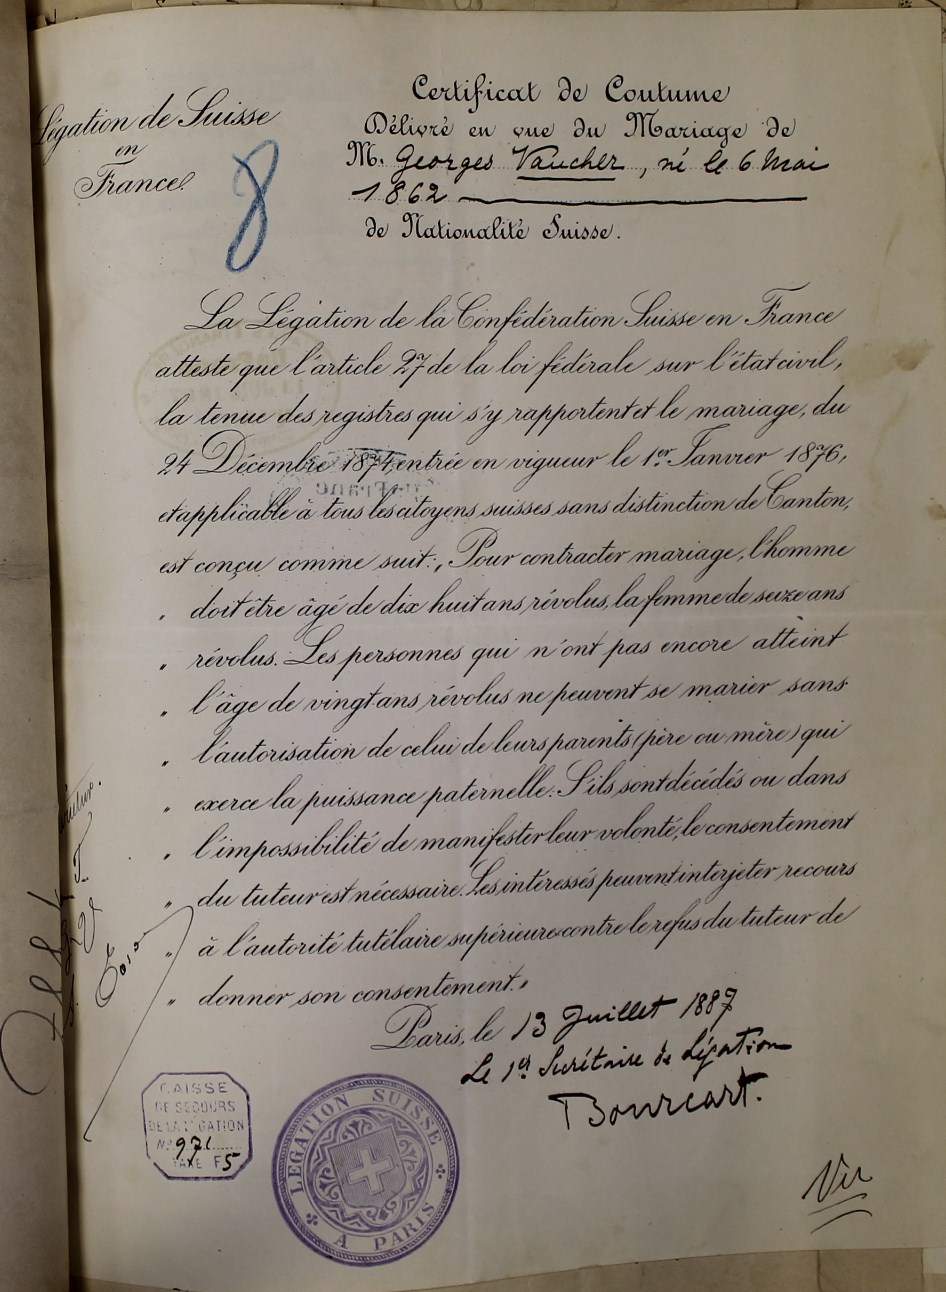 Légation de Suisse
en
France
8
Certificat de Coutume
Délivré en vue du Mariage de
M. Georges Vaucher, né le 6 Mai
1862
de Nationalité Suisse.
La Légation de la Confédération Suisse en France
atteste que l'article 27 de la loi fédérale sur l'état civil,
la tenue des registres qui s'y rapportent et le mariage, du
24 Décembre 1874, entrée en vigueur le 1er Janvier 1876,
et applicable à tous les citoyens suisses sans distinction de Canton,
est conçu comme suit: „Pour contracter mariage, l'homme
„ doit être âgé de dix huit ans révolus, la femme de seize ans
„ révolus. Les personnes qui n'ont pas encore atteint
„ l'âge de vingt ans révolus ne peuvent se marier sans
„ l'autorisation de celui de leurs parents (père ou mère) qui
„ exerce la puissance paternelle. S'ils sont décédés ou dans
„ l'impossibilité de manifester leur volonté, le consentement
„ du tuteur est nécessaire. Les intéressés peuvent interjeter recours
„ à l'autorité tutélaire supérieure contre le refus du tuteur de
„ donner son consentement.„
Paris, le 13 Juillet 1887
Le 1er Secrétaire de Légation
Bourcart.
CAISSE
DE SECOURS
DE LA LÉGATION
No 971
TAXE F5
LÉGATION SUISSE
A PARIS